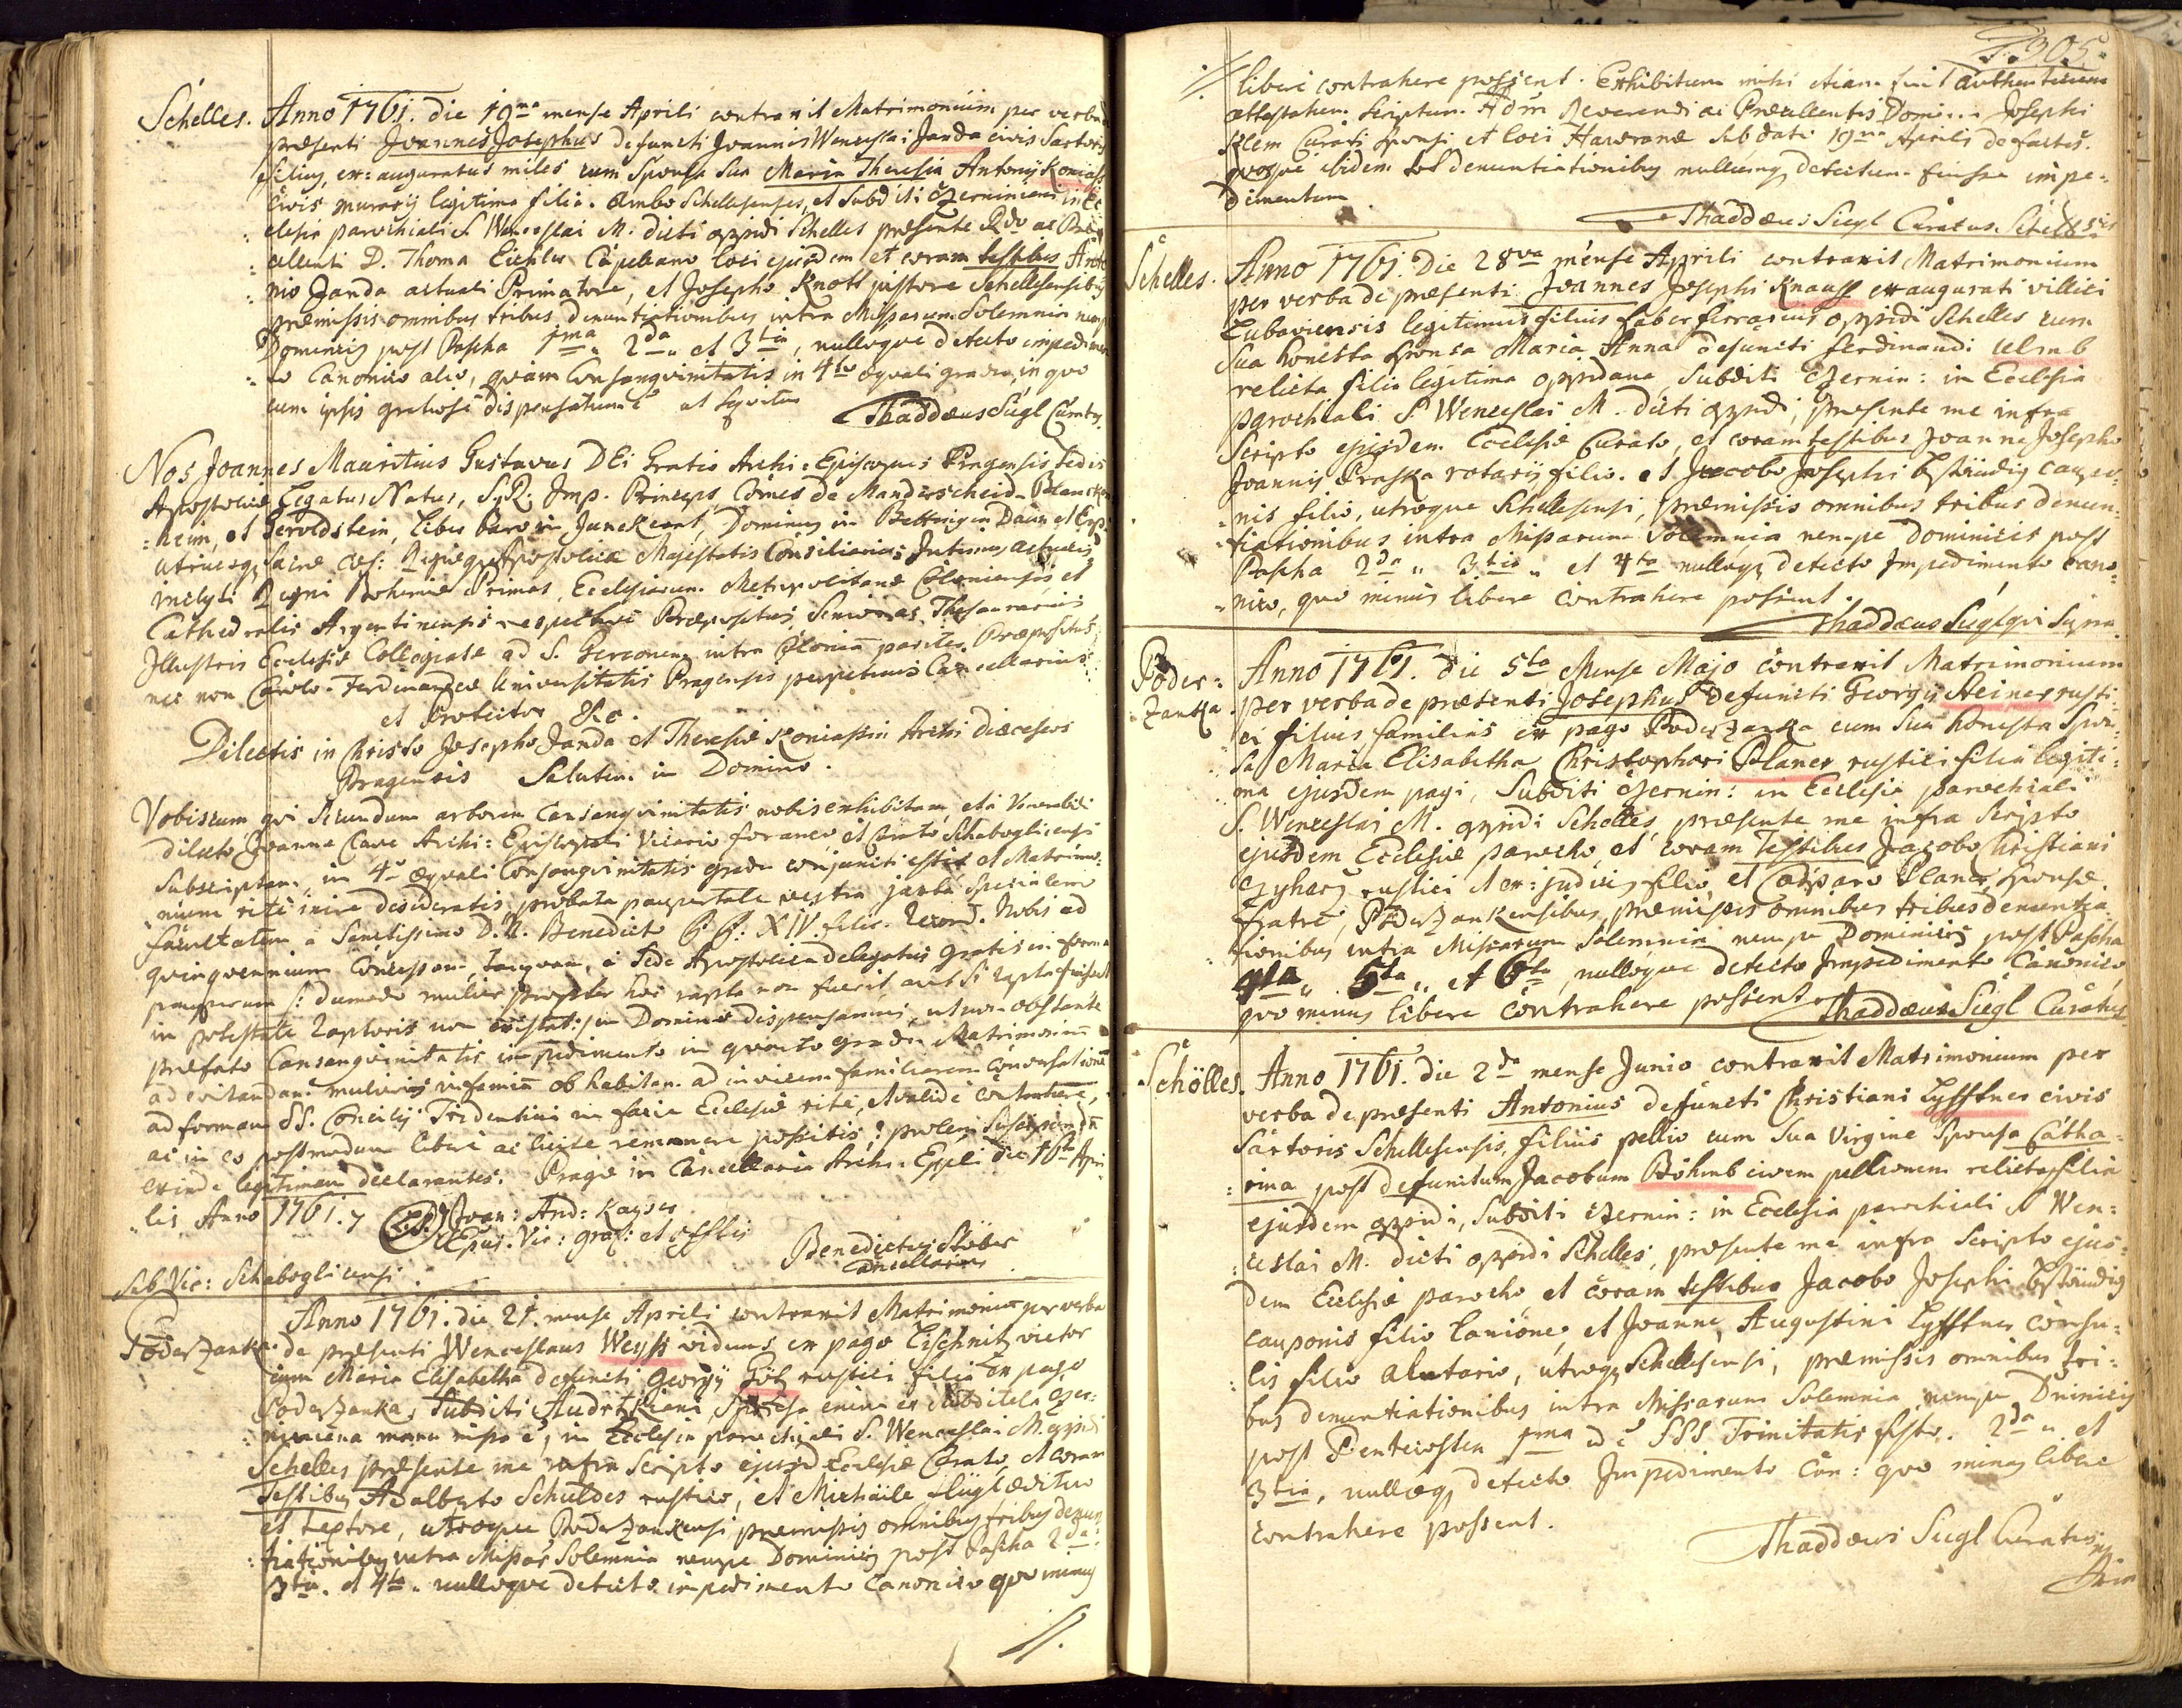 Schelles. Anno 1761. die 19na mense Aprili contraxit Matrimonium per verba
præsenti Joannes Josephus defuncti Joannis Wenceslai Janda civis Sartoris
filius, ex: auguratus miles cum Sponsa Sua Maria Theresia Antonij Koniass
civis murarij legitima filia. Ambo Schellesenses, et Subditi Czerniniani in Ec
clesia parochiali S. Wenceslai M. dicti oppidi Schelles præsente Rdo ac
cellenti D. Thoma Eichler Capellano loci ejusdem et coram testibus Anto
nio Janda actuali Primatore, et Josepho Knott pistore Schellesensibus
præmissis omnibus tribus denuntiationibus intra Missarum Solemnia nempe
Dominicis post Pascha 1ma 2da et 3tia, nulloque detecto impedimen
to Canonico alio, quam Consanguinitatis in 4to æquali gradu, in quo
cum ipsis gratiose dispensatum e ut sequitur
Thaddæus Siegl Curatus.
Nos Joannes Mauritius Gustavus DEi Gratia Archi-Episcopus Pragensis Sedis
Apostolicæ Legatus Natus, S. R. Imp. Princeps, Comes de Manderscheid-Blancken
heim, et Geroldstein, Liber Baro in Junckerat, Dominus in Bettingen Daun et Erp
utriusq Sacræ Cæs: Regiæq Apostolicæ Majestatis Consiliarius Intimus actualis
inclyti Regni Bohemiæ Primas, Ecclesiarum Metropolitanæ Coloniensis, et
Cathedralis Argentinensis respective Præpositus, Senior ac Thesaurarius
Illustris Ecclesiæ Collegiatæ ad S. Gereonem intra Coloniam pariter Præpositus
nec non Carolo-Ferdinandeæ Universitatis Pragensis perpetuus Cancellarius
et Protector &c.
Dilectis in Christo Josepho Janda et Theresiæ Koniassin Archi diæceseos
Pragensis Salutem in Domino.
Vobiscum qui Secundum arborem Consanguinitatis nobis exhibitam, et a Venerabili
dilecto Joanne Archi: Episcopali Vicario foraneo et Curato Schaboglicensi
Subscriptam, in 4to æquali Consanguinitatis gradu conjuncti estis et Matrimo
nium rite inire desideratis, probata paupertate vestra juxta Specialem
facultatem a Sanctissimo D. N. Benedicto PP: XIV. felic. Record. Nobis ad
quinquennium concessam, tanquam a Sede Apostolica delegatus Gratis in forma
pauperum (: dummodo mulier propter hoc rapta non fuerit, aut si rapta fuisset
in potestate Raptoris non existat:) in Domino dispensamus, ut non obstante
præfato Consanguinitatis impedimento in quarto gradu Matrimonium
ad evitandam mulieris infamiam ob habitam ad invicem familiarem Conversationem
ad formam SS. Concilij Tridentini in facie Ecclesiæ rite, et valide contrahere,
ac in eo postmodum libere ac licite remanere possitis: prolem Suscipiendam
exinde legitimam declarantes: Pragæ in Cancellaria Archi-Eppli die 16ta Apri
lis Anno 1761.
Joan: And: Kayser
Epus. Vic: gral: et Offlis
Benedictus Stöber
Cancellarius
Sub Vic: Schaboglicensi
Anno 1761. die 21. mense Aprili contraxit Matrimonium per verba
Poderzanka de præsenti Wenceslaus Weyss viduus ex pago Lischnitz victor
cum Maria Elisabetha defuncti Georgij Götz rustici filia ex pago
Poderzanka, Subditi Sponsa enim ex Subditela Czer
manu missa e, in Ecclesia parochiali S. Wenceslai M. oppidi
Schelles præsente me infra Scripto ejusd Ecclesiæ Curato, et coram
testibus Adalberto Schuldes rustico, et Michaele Flügl ædituo
et textore, utroque Poderzankensi, præmissis omnibus tribus denun
tiationibus intra Missar Solemnia nempe Dominicis post Pascha 2da
3tia et 4ta nulloque detecto impedimento Canonico quo minus
//.
P. 305.
// libere contrahere possent. Exhibitum mihi etiam fuit authenticum
attestatum Scriptum Adm Reverendi ac Præcellentis Domini Josephi
Klem Curati Sponsi et loci Hawranæ Sub dato 19na Aprilis de facto.
quoque ibidem denuntiationibus nullumq detectum fuisse impe
dimentum.
Thaddæus Siegl Curatus Schellsis
Schelles. Anno 1761. Die 28va mense Aprili contraxit Matrimonium
per verba de præsenti Joannes Josephi Knauss exaugurati villici
Lubaviensis legitimus filius faber ferrarius oppidi Schelles cum
Sua honesta Sponsa Maria Anna defuncti ferdinandi Ulmb
relicta filia legitima oppidana, Subditi Czernin: in Ecclesia
parochiali S. Wenceslai M. dicti oppidi, præsente me infra
Scripto ejusdem Ecclesiæ Curato, et coram testibus Joanne Josepho
Joannis Praska rotarij filio, et Jacobo Josephi Bständig caupo
nis filio, utroque Schellesensi, præmissis omnibus tribus denun
tiationibus intra Missarum Solemnia nempe Dominicis post
Pascha 2da 3tia et 4ta nulloq detecto Impedimento cano
nico, quo minus libere contrahere possent.
Thaddæus Siegl qui Supra
Poder: Anno 1761. die 5ta Mense Majo contraxit Matrimonium
zanka. per verba de præsenti Josephus defuncti Georgij Steiner rusti
ci filius familias ex pago Poderzanka cum Sua honesta Spon
sa Maria Elisabetha Christophori Planer rustici filia legiti
ma ejusdem pagi, Subditi Czernin: in Ecclesia parochiali
S. Wenceslai M. oppidi Schelles, præsente me infra Scripto
ejusdem Ecclesiæ parocho, et coram Testibus Jacobo Christiani
Czyharz rustici et ex: judicis filio, et Casparo Planer Sponsæ
fratre, Poderzankensibus, præmissis omnibus tribus denuntia
tionibus intra Missarum Solemnia nempe Dominicis post Pascha
4ta 5ta et 6ta, nulloque detecto Impedimento Canonico
quo minus libere contrahere possent. Thaddæus Siegl Curatus
Schölles. Anno 1761. die 2da mense Junio contraxit Matrimonium per
verba de præsenti Antonius defuncti Christiani Lyfftner civis
Sartoris Schellesensis, filius pellio cum Sua Virgine Sponsa Catha
rina post defunctum Jacobum Böhmb civem pellionem relicta filia
ejusdem oppidi, Subditi Czernin: in Ecclesia parochiali S. Wen
ceslai M. dicti oppidi Schelles, præsente me infra Scripto ejus
dem Ecclesiæ parocho, et coram testibus Jacobo Josephi Bständig
cauponis filio lanione, et Joanne, Augustini Lyfftner consu
lis filio alutario, utroq Schellesensi, præmissis omnibus tri
bus denuntiationibus intra Missarum Solemnia nempe Dominicis
post Pentecosten 1ma id e SSS Trinitatis festo. 2da et
3tia, nulloq detecto Impedimento Can: quo minus libere
contrahere possent.
Thaddæus Siegl Curatus